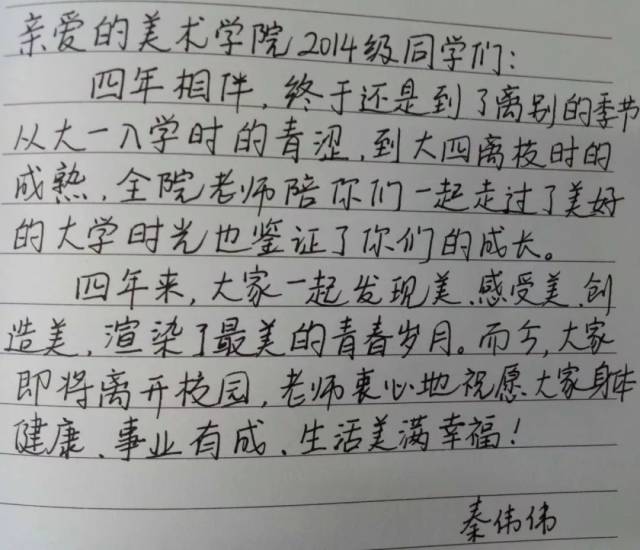 亲爱的美术学院2014级同学们:
四年相伴,终于还是到了离别的季节
从大一入学时的青涩,到大四离校时的
成熟,全院老师陪你们一起走过了美好
的大学时光也鉴证了你们的成长。
四年来,大家一起发现美、感受美、创
造美,渲染了最美的青春岁月。而今,大家
即将离开校园,老师衷心地祝愿大家身体
健康、事业有成、生活美满幸福!
秦伟伟